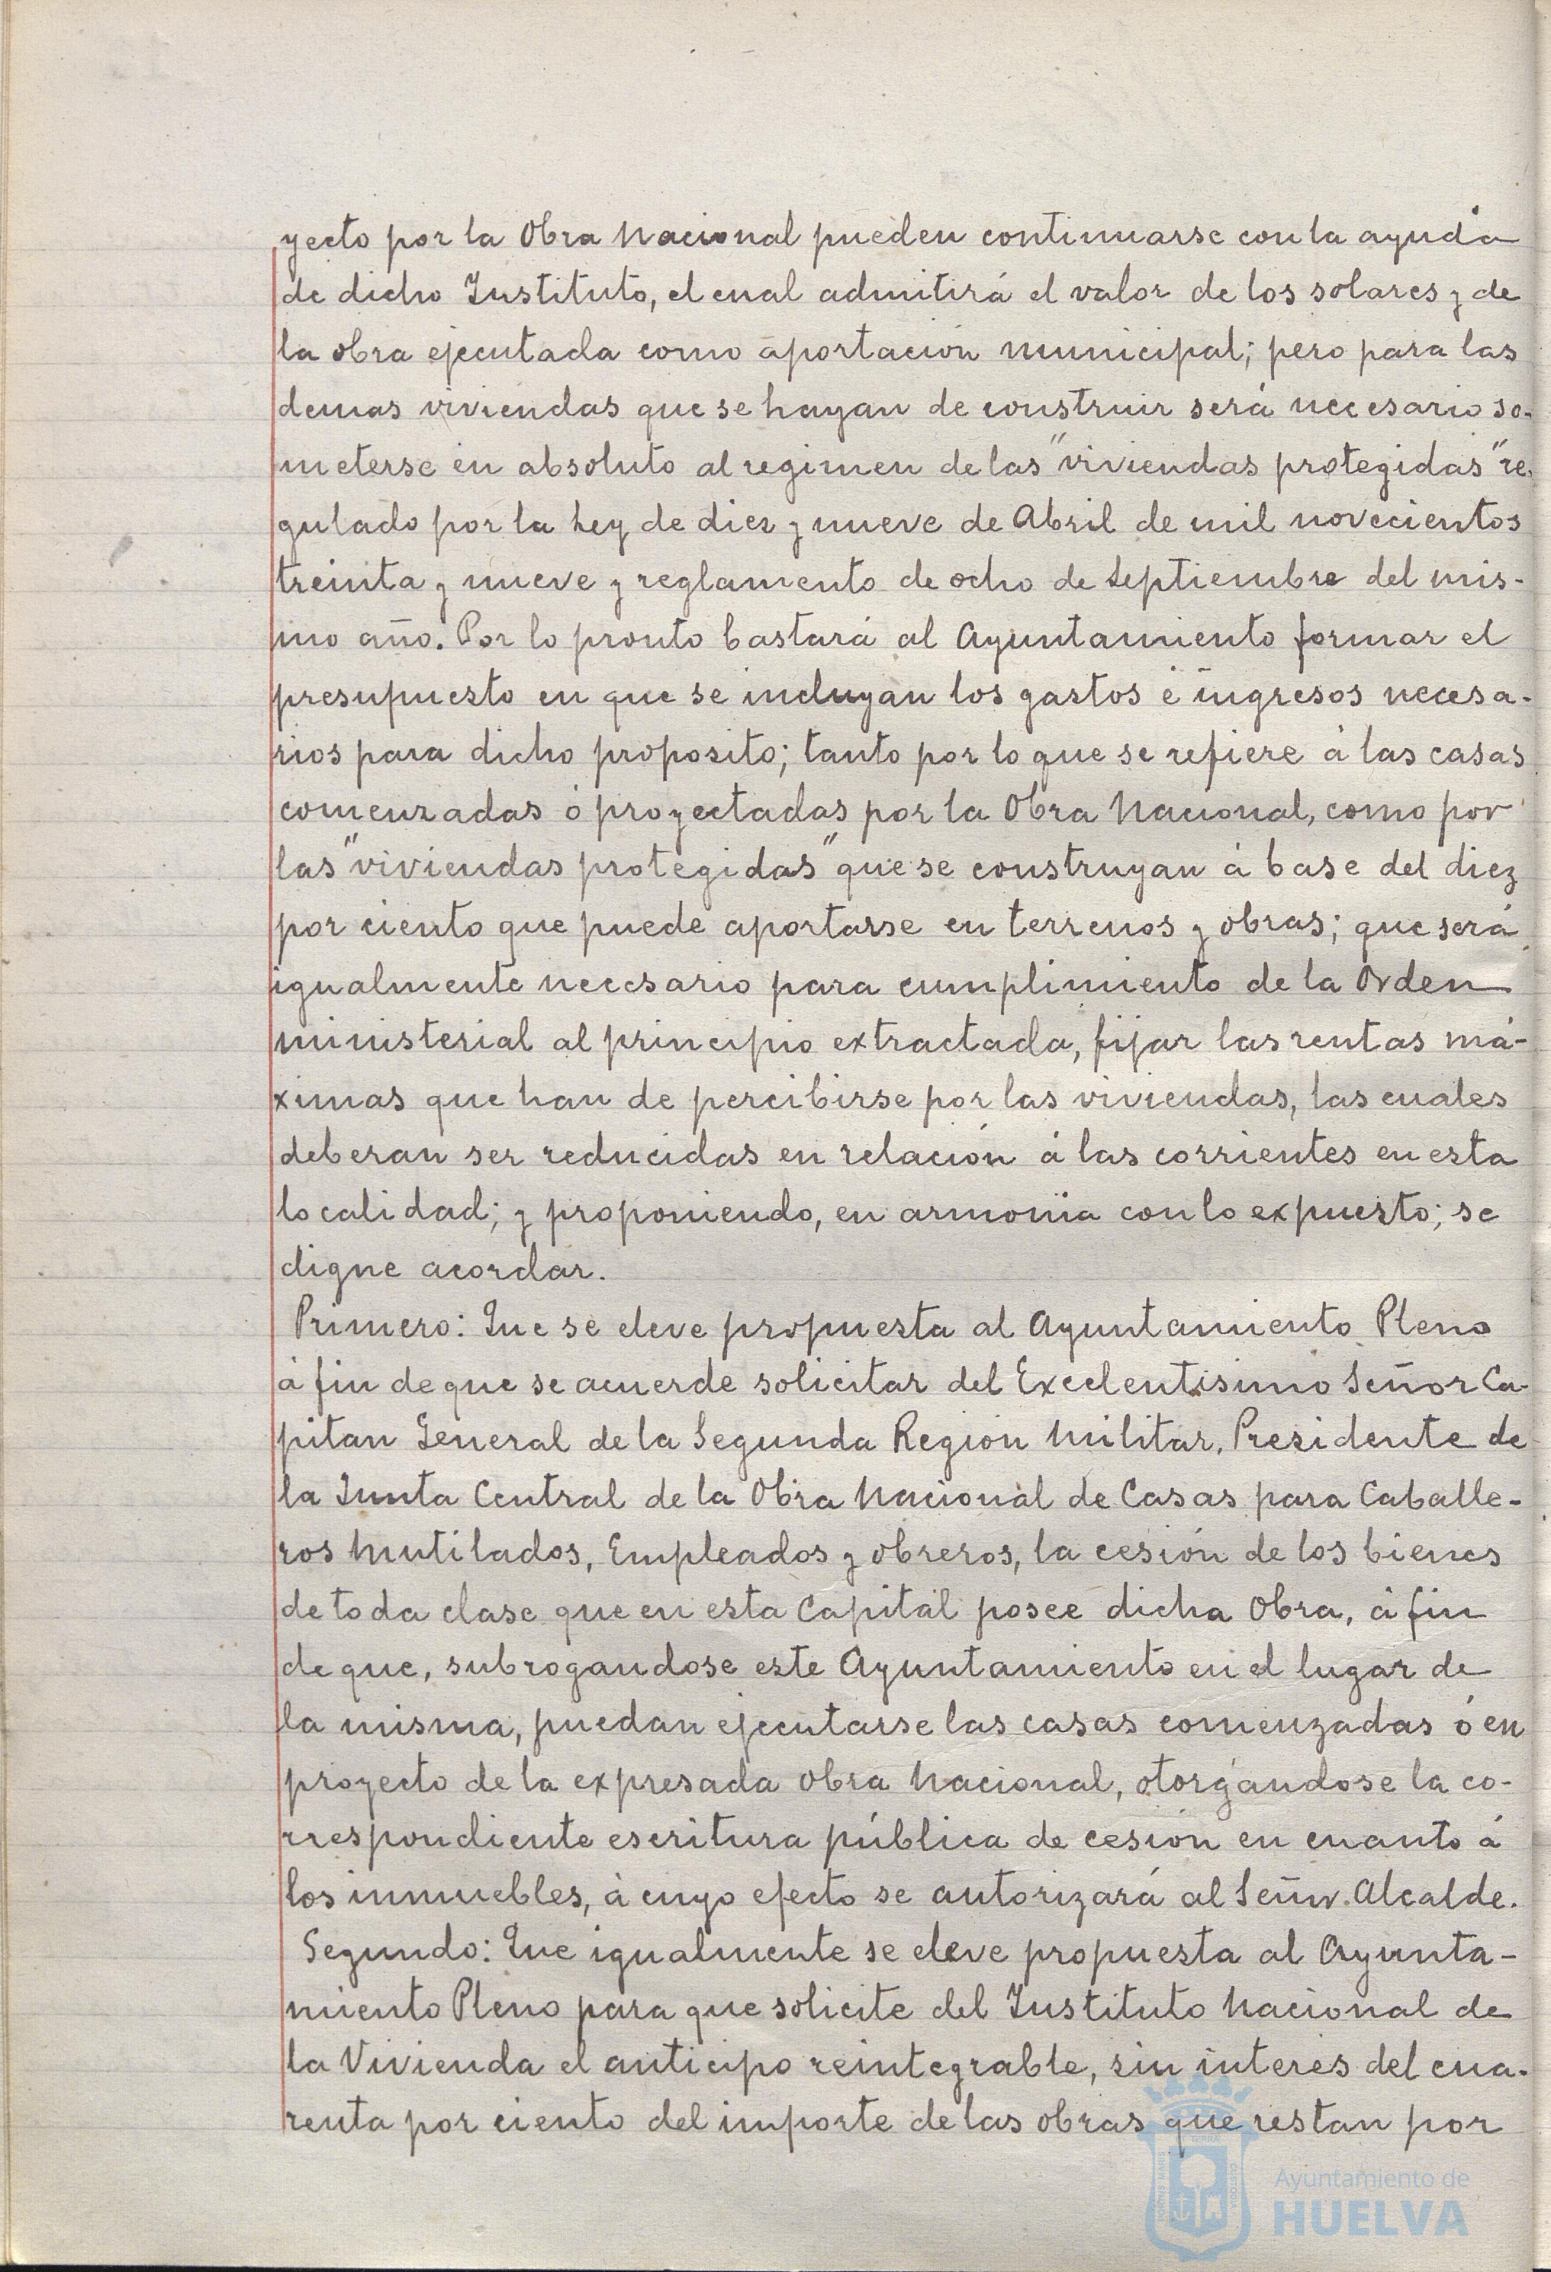 yecto por la Obra Nacional pueden continuarse con la ayuda
de dicho Instituto, el cual admitirá el valor de los solares y de
la obra ejecutada como aportación municipal; pero para las
demas viviendas que se hayan de construir será necesario so-
meterse en absoluto al regimen de las "viviendas protegidas" re-
gulado por la Ley de diez y nueve de Abril de mil novecientos
treinta y nueve y reglamento de ocho de Septiembre del mis-
mo año. Por lo pronto bastará al Ayuntamiento formar el
presupuesto en que se incluyan los gastos é ingresos necesa-
rios para dicho proposito; tanto por lo que se refiere á las casas
comenzadas ó proyectadas por la Obra Nacional, como por
las "viviendas protegidas" que se construyan á base del diez
por ciento que puede aportarse en terrenos y obras; que será
igualmente necesario para cumplimiento de la Orden
ministerial al principio extractada, fijar las rentas má-
ximas que han de percibirse por las viviendas, las cuales
deberan ser reducidas en relación á las corrientes en esta
localidad; y proponiendo, en armonia con lo expuesto; se
digne acordar.
Primero: Que se eleve propuesta al Ayuntamiento Pleno
á fin de que se acuerde solicitar del Excelentisimo Señor Ca-
pitan General de la Segunda Region Militar, Presidente de
la Junta Central de la Obra Nacional de Casas para Caballe-
ros Mutilados, Empleados y obreros, la cesión de los bienes
de toda clase que en esta Capital posee dicha Obra, á fin
de que, subrogandose este Ayuntamiento en el lugar de
la misma, puedan ejecutarse las casas comenzadas ó en
proyecto de la expresada Obra Nacional, otorgándose la co-
rrespondiente escritura pública de cesión en cuanto á
los inmuebles, á cuyo efecto se autorizará al Señor Alcalde.
Segundo: Que igualmente se eleve propuesta al Ayunta-
miento Pleno para que solicite del Instituto Nacional de
la Vivienda el anticipo reintegrable, sin interés del cua-
renta por ciento del importe de las obras que restan por
Ayuntamiento de
HUELVA